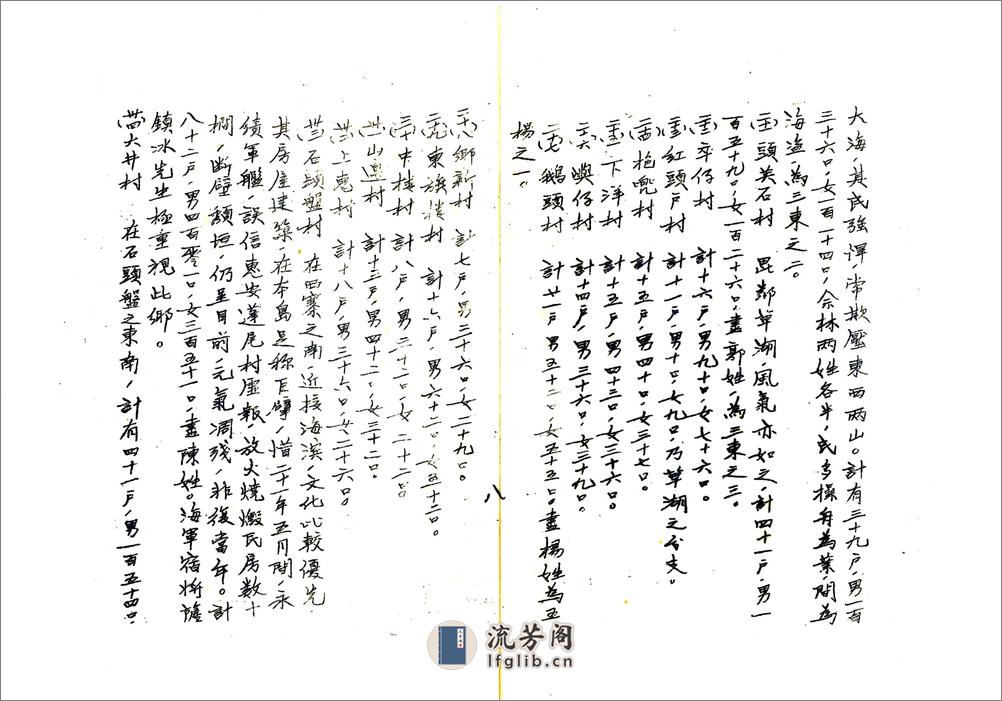 大海，其民強渾，常欺壓東西兩山。計有三十九户，男一百
三十六口，女一百一十四口，佘林兩姓各半，民多操舟為業，間為
海盗，為三東之二。
頭关石村　毘鄰草湖，風氣亦如之，計四十一户，男一
百五十九口，女一百二十六口，盡郭姓，為三東之三。
卒仔村　計十六户，男九十口，女七十六口。
紅頭户村　計十一户，男十口，女九口，乃草湖之分支。
抱兜村　計十五户，男四十口，女三十七口。
下洋村　計十五户，男四十三口，女三十六口。
嶼仔村　計十四户，男三十六口，女三十九口。
鵝頭村　計廿一户，男五十二口，女五十五口。盡楊姓為五
楊之一。
八
鄉新村　計七户，男三十六口，女二十九口。
東族樓村　計十六户，男六十二口，女五十二口。
中樓村　計八户，男二十二口，女二十二口。
山邊村　計十三户，男四十二口，女三十二口。
上惠村　計十八户，男三十六口，女二十六口。
石頭盤村　在西寨之南，近接海濱，文化比較優先，
其房屋建築，在本島足称巨擘，惜二十一年五月間，永
績軍艦，誤信惠安蓮尾村虛報，放火燒燬民房数十
橺，斷壁頹垣，仍呈目前，元氣凋殘，非復當年。計
八十二户，男四百零一口，女三百五十一口，盡陳姓。海軍宿将薩
鎮冰先生極重視此鄉。
大井村　在石頭盤之東南，計有四十一户，男一百五十四口，
流芳阁
lfglib.cn